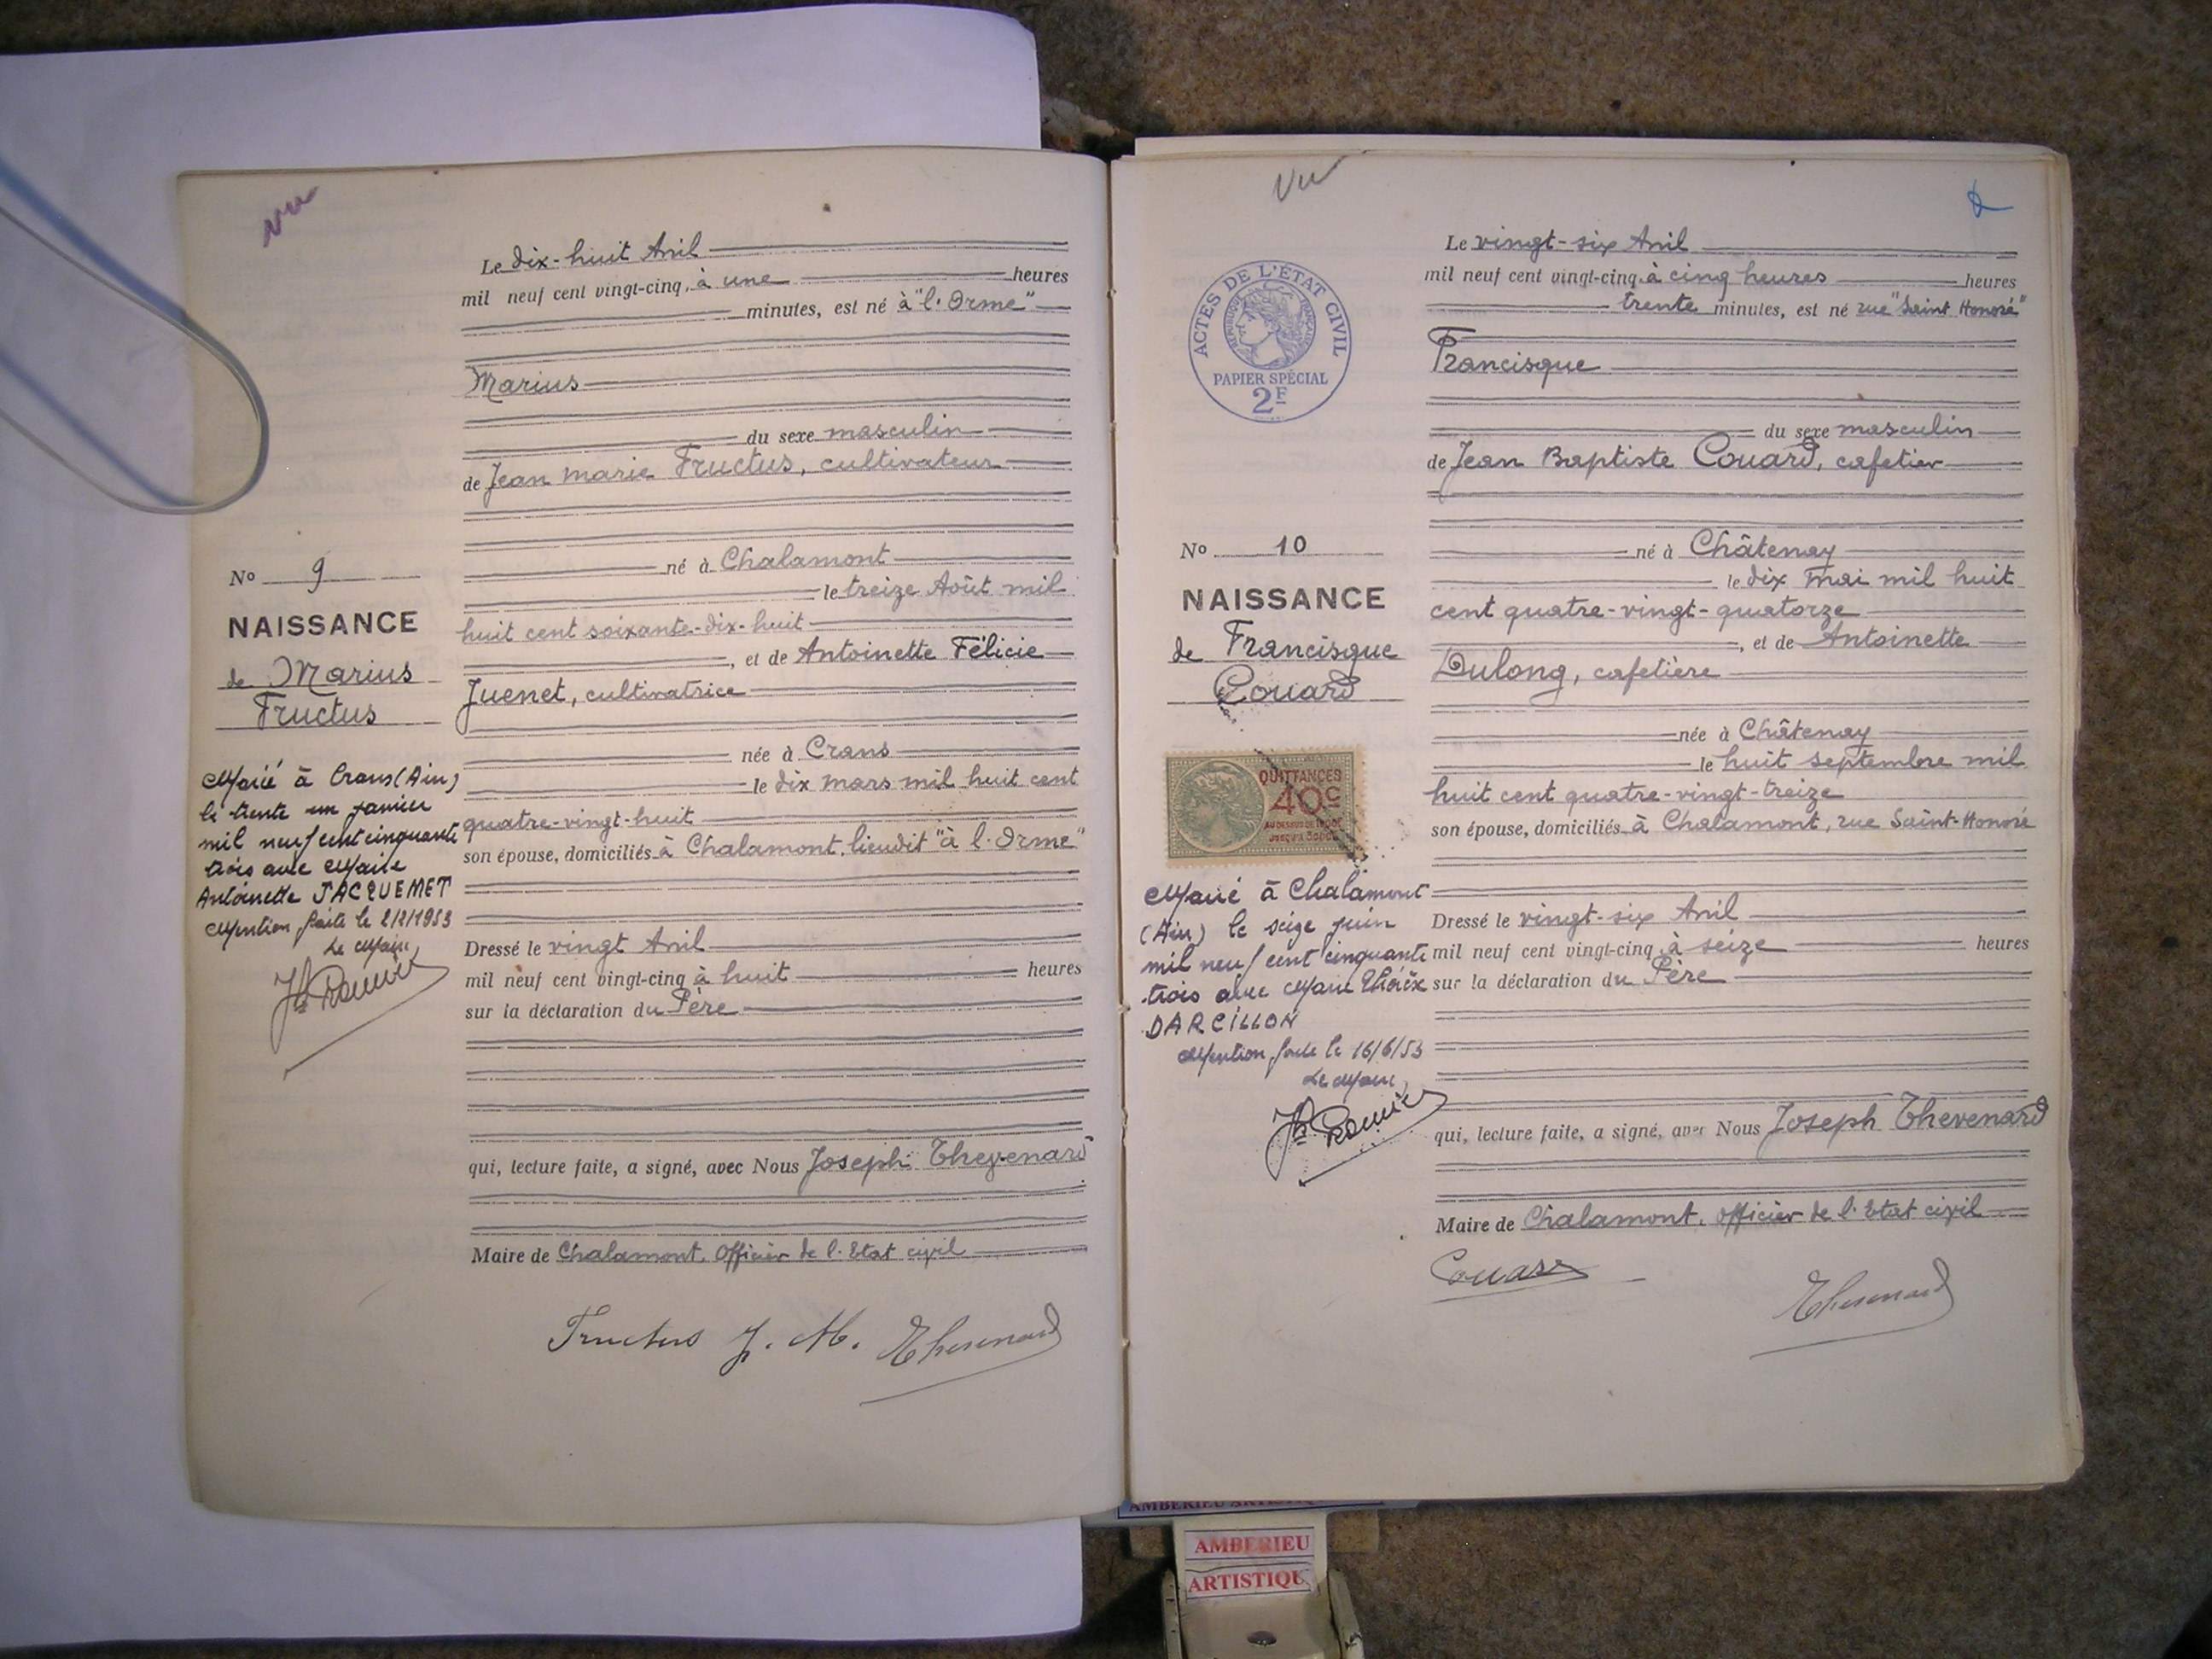 vu
Le dix-huit Avril
mil neuf cent vingt-cinq, à une heures
minutes, est né à "l'Orme"
Marius
du sexe masculin
de Jean Marie Fructus, cultivateur
né à Chalamont
le treize Août mil
huit cent soixante-dix-huit
, et de Antoinette Félicie
Juenet, cultivatrice
née à Crans
le dix mars mil huit cent
quatre-vingt-huit
son épouse, domiciliés à Chalamont, lieudit "à l'Orme"
Dressé le vingt Avril
mil neuf cent vingt-cinq à huit heures
sur la déclaration du Père
qui, lecture faite, a signé, avec Nous Joseph Thevenard
Maire de Chalamont, Officier de l'Etat civil
Fructus J. M. Thevenard
No 9
NAISSANCE
de Marius
Fructus
Marié à Crans (Ain)
le trente un janvier
mil neuf cent cinquante
trois avec Marie
Antoinette JACQUEMET
Mention faite le 2/2/1953
Le Maire,
Vu
ACTES DE L'ÉTAT CIVIL
RÉPUBLIQUE FRANÇAISE
PAPIER SPÉCIAL
2F
Le vingt-six Avril
mil neuf cent vingt-cinq à cinq heures heures
trente minutes, est né rue "Saint Honoré"
Francisque
du sexe masculin
de Jean Baptiste Couard, cafetier
né à Châtenay
le dix Mai mil huit
cent quatre-vingt-quatorze
, et de Antoinette
Dulong, cafetière
née à Châtenay
le huit septembre mil
huit cent quatre-vingt-treize
son épouse, domiciliés à Chalamont, rue Saint-Honoré
Dressé le vingt-six Avril
mil neuf cent vingt-cinq à seize heures
sur la déclaration du Père
qui, lecture faite, a signé, avec Nous Joseph Thevenard
Maire de Chalamont, Officier de l'Etat civil
Couard Thevenard
No 10
NAISSANCE
de Francisque
Couard
QUITTANCES
40c
Marié à Chalamont
(Ain) le seize juin
mil neuf cent cinquante
trois avec Marie Thérèse
DARCILLON
Mention faite le 16/6/53
Le Maire,
AMBERIEU
AMBERIEU
ARTISTIQU